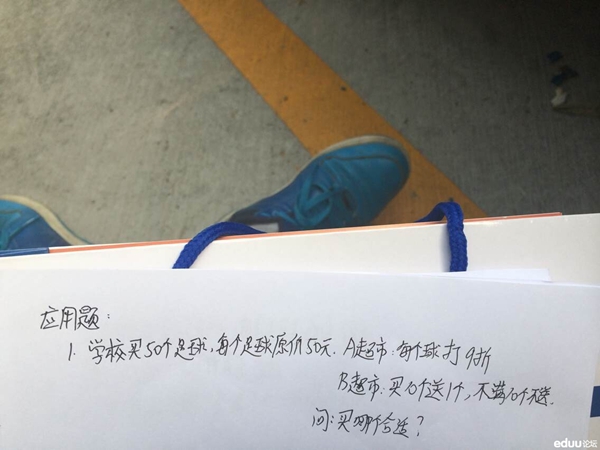 应用题:
1. 学校买50个足球,每个足球原价50元. A超市:每个球打9折
B超市:买10个送1个,不满10个不送.
问:买哪个合适?
eduu论坛